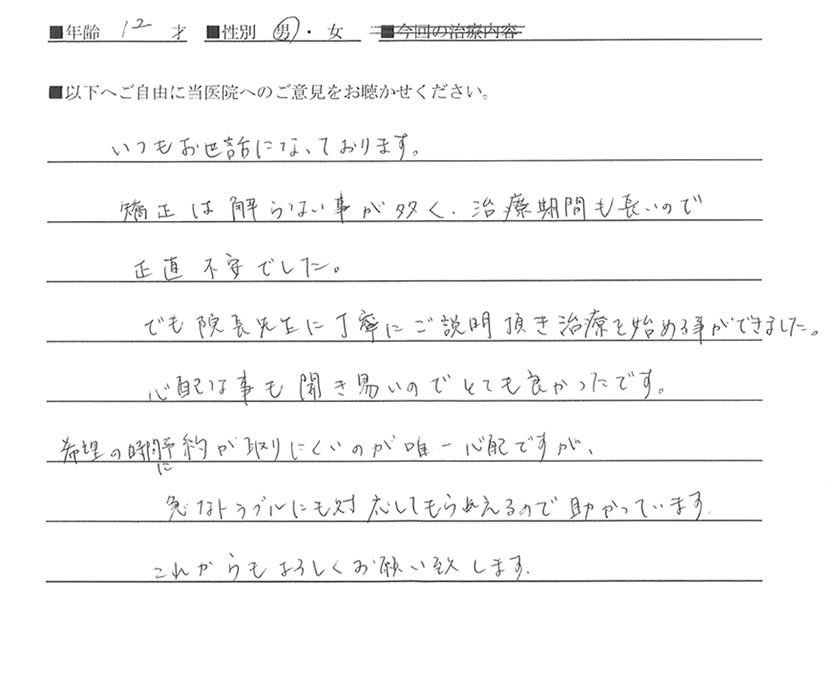 ■年齢 12 才 ■性別 男・女 ■今回の治療内容
■以下へご自由に当医院へのご意見をお聴かせください。
いつもお世話になっております。
矯正は解らない事が多く、治療期間も長いので
正直不安でした。
でも院長先生に丁寧にご説明頂き治療を始める事ができました。
心配な事も聞き易いのでとても良かったです。
希望の時間に予約が取りにくいのが唯一心配ですが、
急なトラブルにも対応してもらえるので助かっています。
これからもよろしくお願い致します。